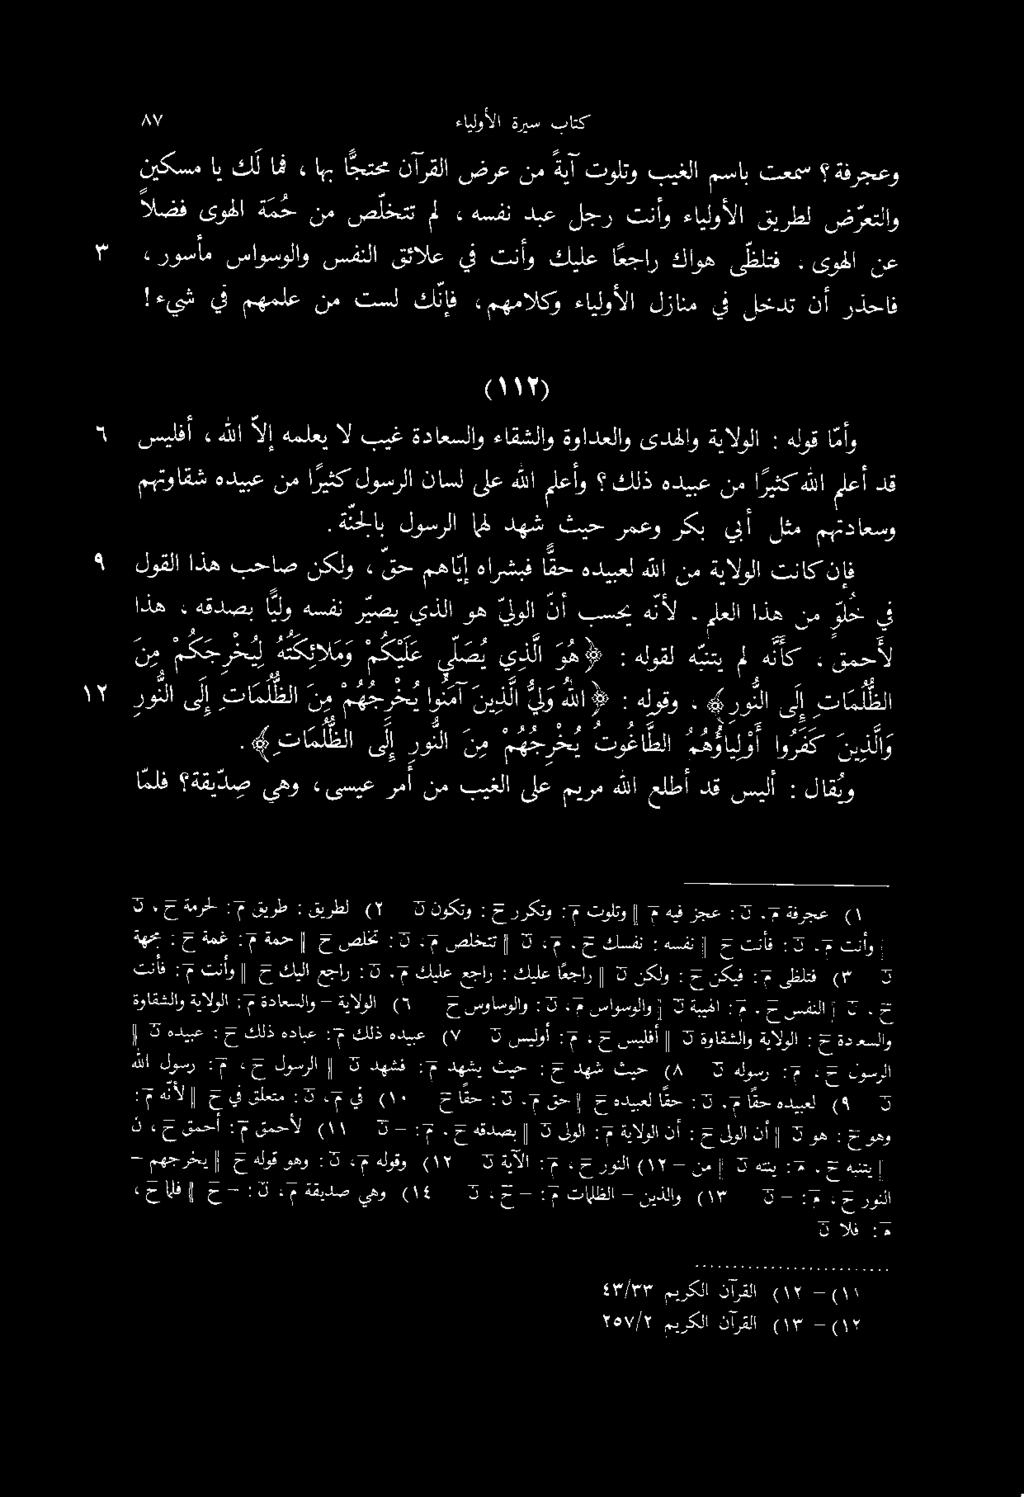 كتاب سيرة الأولياء ٨٧
وعجرفة؟ سمعت باسم الغيب وتلوت آيةً من عرض القرآن محتجًّا بها ، فما لَك يا مسكين
والتعرّض لطريق الأولياء وأنت رجل عبد نفسه ، لم تتخلّص من حُمَة الهوى فضلاً
عن الهوى . فتلظّى هواك راجعًا عليك وأنت في علائق النفس والوسواس مأسور ، ٣
فاحذر أن تدخل في منازل الأولياء وكلامهم ، فإنّك لست من علمهم في شيء!
(١١٢)
وأمّا قوله : الولاية والهدى والعداوة والشقاء والسعادة غيب لا يعلمه إلاّ الله ، أفليس ٦
قد أعلم الله كثيرًا من عبيده ذلك؟ وأعلم الله على لسان الرسول كثيرًا من عبيده شقاوتهم
وسعادتهم مثل أبي بكر وعمر حيث شهد لهما الرسول بالجنّة.
فإن كانت الولاية من الله لعبيده حقًّا فبشراه إيّاهم حقّ ، ولكن صاحب هذا القول ٩
في خُلوٍّ من هذا العلم . لأنه يحسب أنّ الوليّ هو الذي يصيّر نفسه وليًّا بصدقه ، هذا
لأحمق ، كأنّه لم يتنبّه لقوله : ﴿هُوَ الَّذِي يُصَلِّي عَلَيْكُمْ وَمَلَائِكَتُهُ لِيُخْرِجَكُمْ مِنَ
الظُّلُمَاتِ إِلَى النُّورِ﴾ ، وقوله : ﴿اللهُ وَلِيُّ الَّذِينَ آمَنُوا يُخْرِجُهُمْ مِنَ الظُّلُمَاتِ إِلَى النُّورِ ١٢
وَالَّذِينَ كَفَرُوا أَوْلِيَاؤُهُمُ الطَّاغُوتُ يُخْرِجُهُمْ مِنَ النُّورِ إِلَى الظُّلُمَاتِ﴾ .
ويُقال : أليس قد أطلع الله مريم على الغيب من أمر عيسى ، وهي صِدّيقة؟ فلمّا
١) عجرفة م ، ن : عجز فيه م || وتلوت م : وتكرر خ : وتكون ن ٢) لطريق : طريق م : لحرمة خ ، ن
| وأنت م ، ن : فأنت خ || نفسه : نفسك خ ، م ، ن || تتخلص م ، ن : تخلص خ || حمة م : غمة خ : محجة
ن ٣) فتلظى م : فيكن خ : ولكن ن || راجعًا عليك : راجع عليك م ، ن : راجع اليك خ || وأنت م : فأنت
خ ، ن | النفس خ ، م : الهيبة ن | والوسواس م ، ن : والوساوس خ ٦) الولاية – والسعادة م : الولاية والشقاوة
والسعادة خ : الولاية والشقاوة ن || أفليس خ ، م : أوليس ن ٧) عبيده ذلك م : عباده ذلك خ : عبيده ن ||
الرسول خ ، م : رسوله ن ٨) حيث شهد خ : حيث يشهد م : فشهد ن || الرسول خ ، م : رسول الله
ن ٩) لعبيده حقًّا م ، ن : حقًّا لعبيده خ || حق م ، ن : حاقًّا خ ١٠) في م ، ن : متعلق في خ || لأنّه م :
وهو خ : هو ن || أن الولى خ : أن الولاية م : الولى ن || بصدقه خ ، م : – ن ١١) لأحمق م : أحمق خ ، ن
| يتنبه خ ، م : ينته ن || من – ١٢) النور خ ، م : الآية ن ١٢) وقوله م ، ن : وهو قوله خ || يخرجهم –
النور خ ، م : – ن ١٣) والذين – الظلمات م : – خ ، ن ١٤) وهي صديقة م ، ن : – خ || فلما خ ،
م : فلا ن
١١) – ١٢) القرآن الكريم ٤٣/٣٣
١٢) – ١٣) القرآن الكريم ٢٥٧/٢